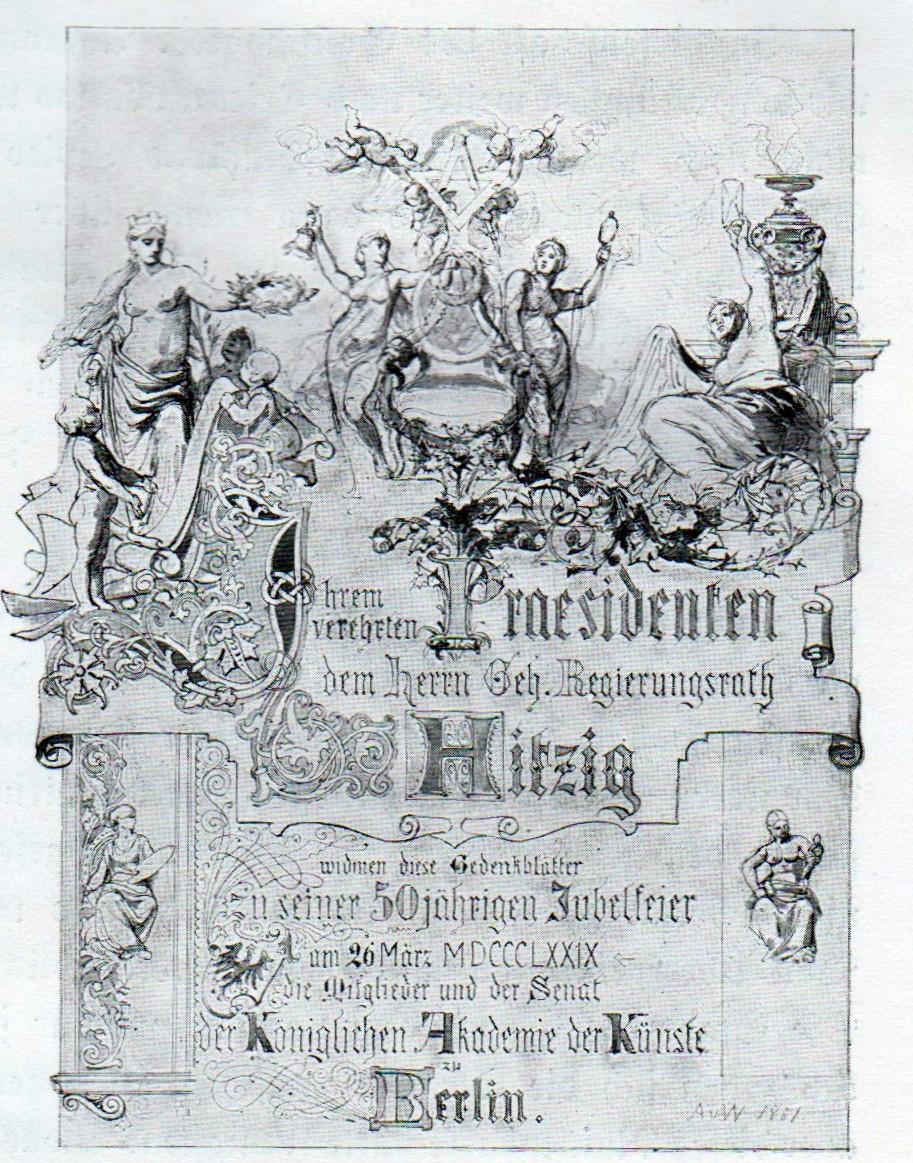 Ihrem
verehrten Praesidenten
dem Herrn Geh. Regierungsrath
Hitzig
widmen diese Gedenkblätter
zu seiner 50jährigen Jubelfeier
am 26 März MDCCCLXXIX
die Mitglieder und der Senat
der Königlichen Akademie der Künste
zu
Berlin.
AvW 1881